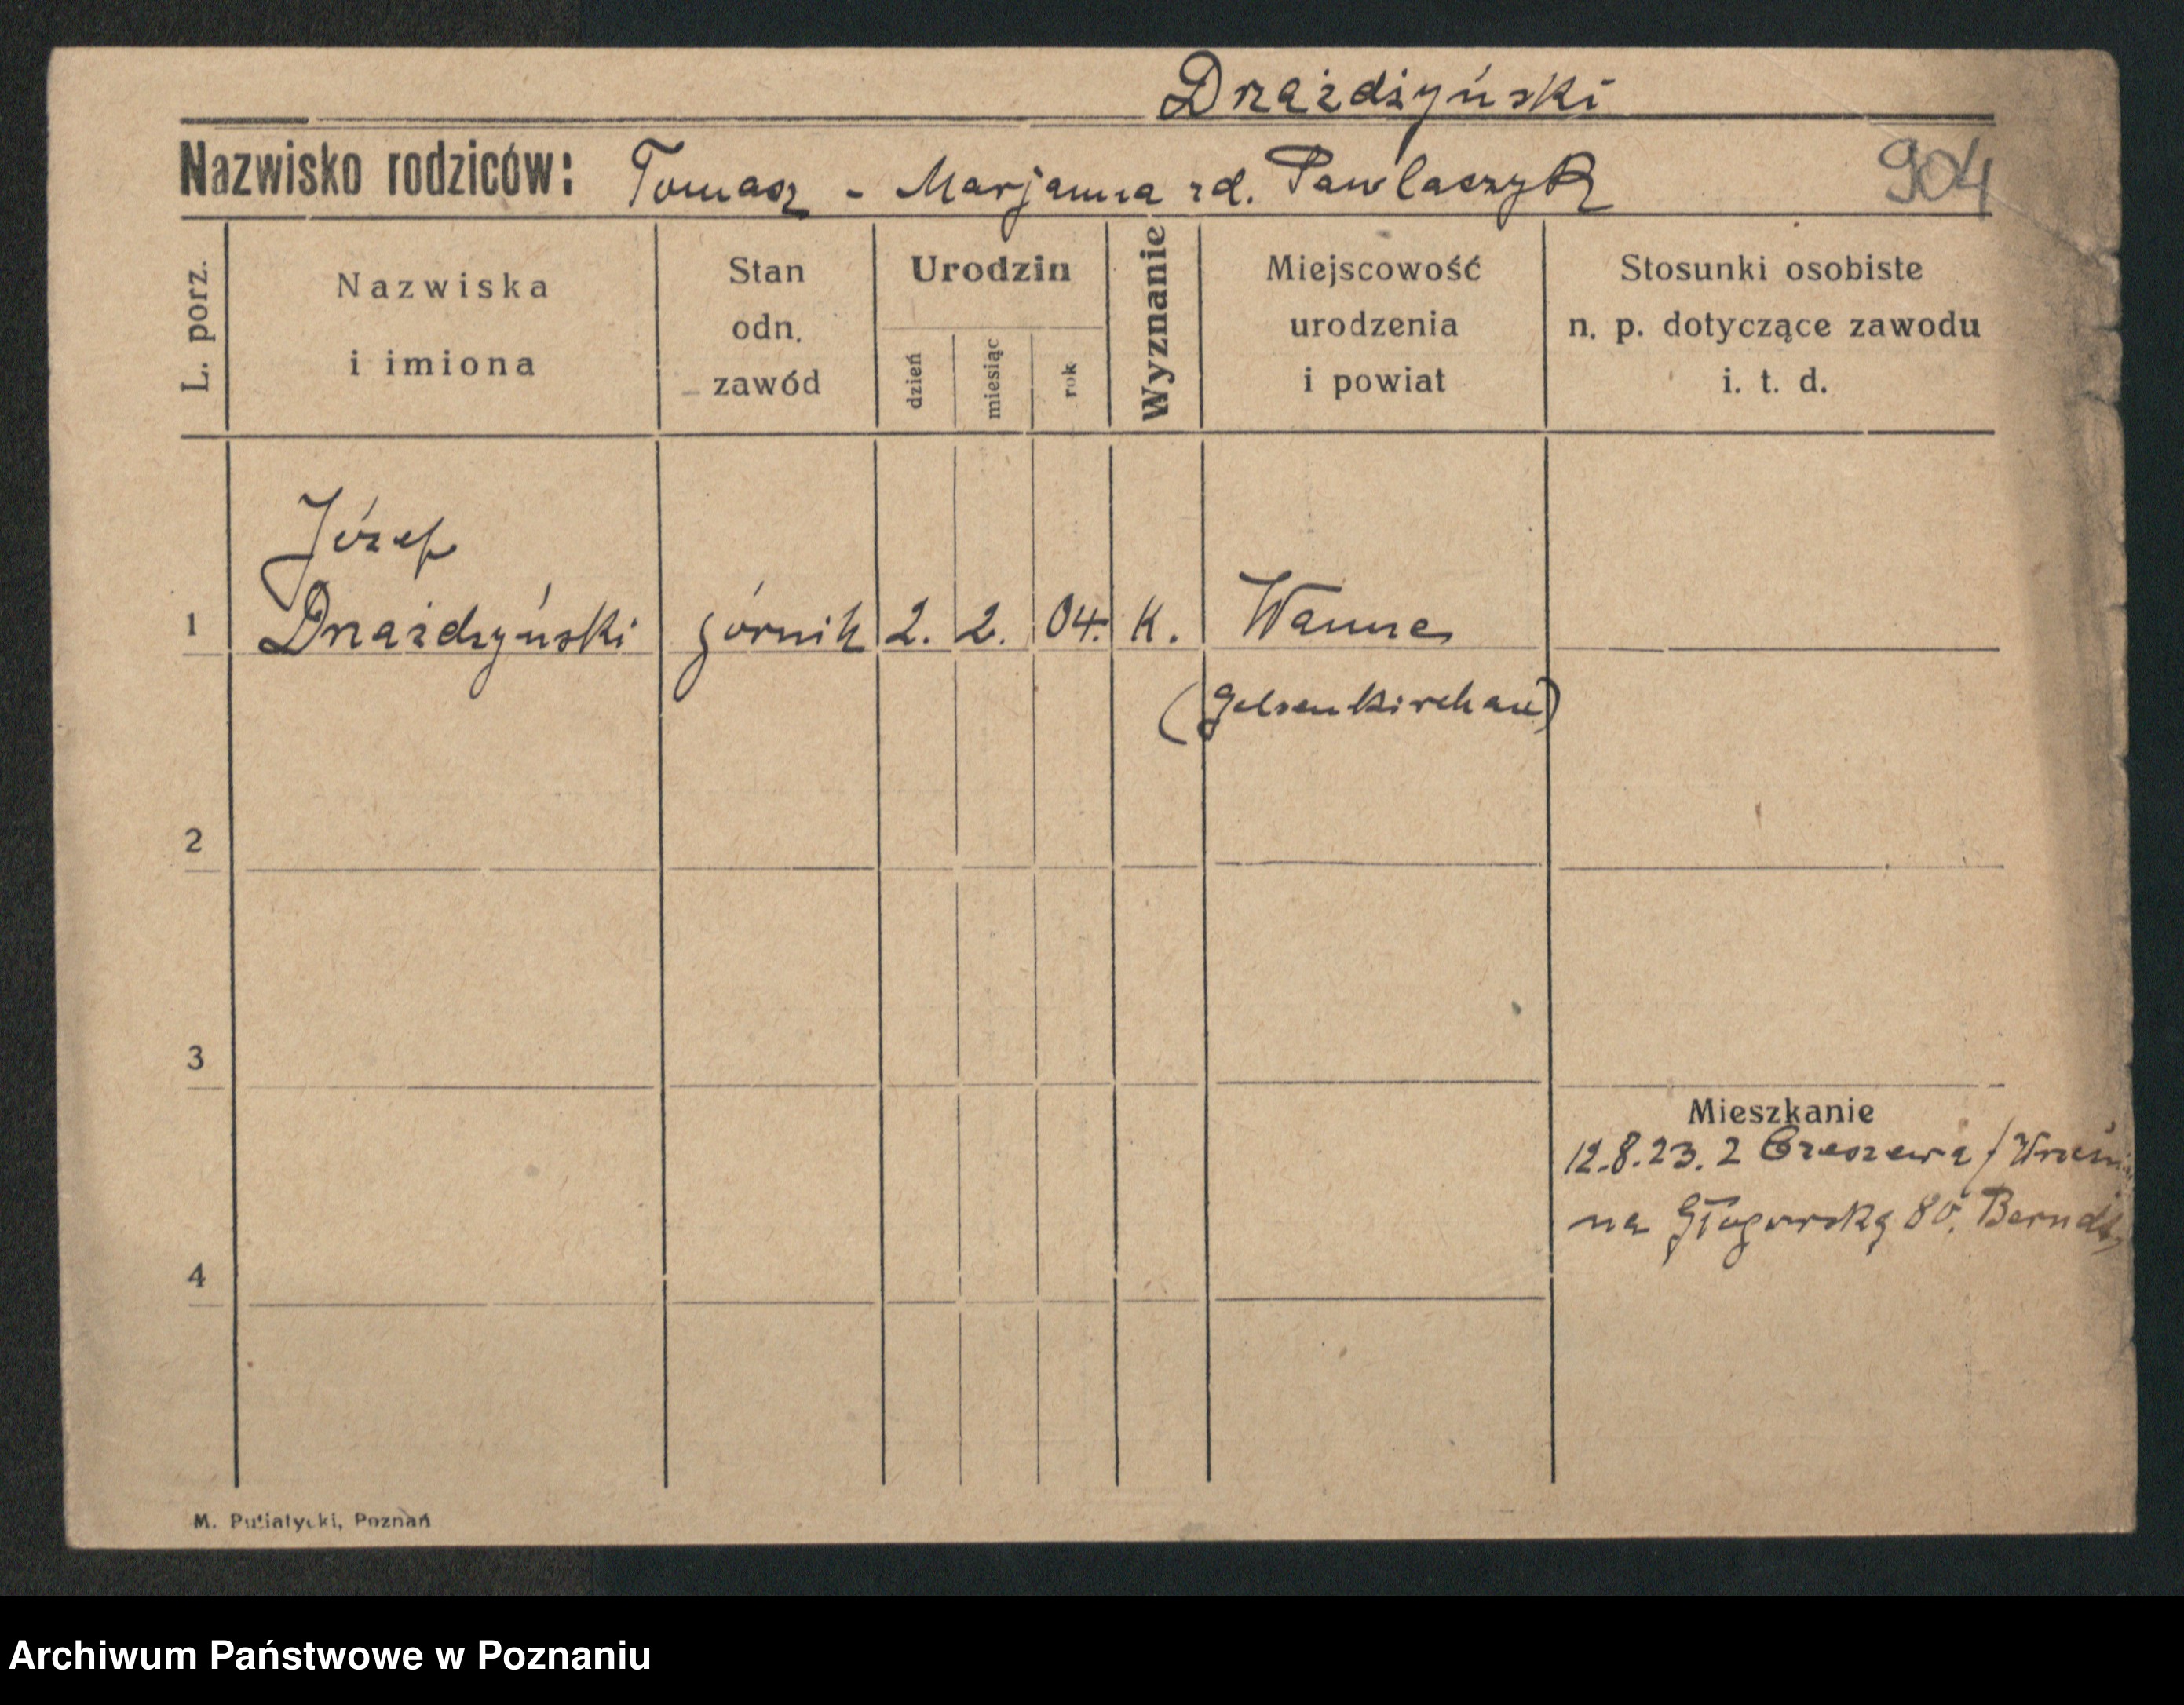 Drażdżyński
Nazwisko rodziców: Tomasz - Marjanna zd. Pawlaczyk
904
L. porz.
Nazwiska
i imiona
Stan
odn.
zawód
Urodzin
dzień
miesiąc
rok
Wyznanie
Miejscowość
urodzenia
i powiat
Stosunki osobiste
n. p. dotyczące zawodu
i. t. d.
Józef
1 Drażdżyński górnik 2. 2. 04. K. Wanne
(Gelsenkirchen)
2
3
Mieszkanie
12.8.23. z Orzeszewa / Wrześn
na Głogowską 80. Berndt
4
M. Putiatycki, Poznań
Archiwum Państwowe w Poznaniu